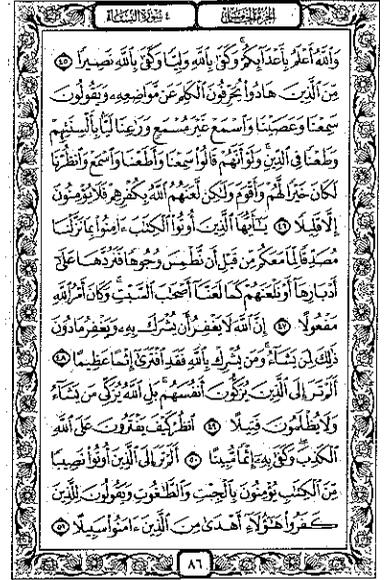 الجزء الخامس
٤ سورة النساء
وَٱللَّهُ أَعْلَمُ بِأَعْدَآئِكُمْ ۚ وَكَفَىٰ بِٱللَّهِ وَلِيًّا وَكَفَىٰ بِٱللَّهِ نَصِيرًا ٤٥
مِّنَ ٱلَّذِينَ هَادُوا۟ يُحَرِّفُونَ ٱلْكَلِمَ عَن مَّوَاضِعِهِۦ وَيَقُولُونَ
سَمِعْنَا وَعَصَيْنَا وَٱسْمَعْ غَيْرَ مُسْمَعٍ وَرَٰعِنَا لَيًّۢا بِأَلْسِنَتِهِمْ
وَطَعْنًا فِى ٱلدِّينِ ۚ وَلَوْ أَنَّهُمْ قَالُوا۟ سَمِعْنَا وَأَطَعْنَا وَٱسْمَعْ وَٱنظُرْنَا
لَكَانَ خَيْرًا لَّهُمْ وَأَقْوَمَ وَلَٰكِن لَّعَنَهُمُ ٱللَّهُ بِكُفْرِهِمْ فَلَا يُؤْمِنُونَ
إِلَّا قَلِيلًا ٤٦ يَٰٓأَيُّهَا ٱلَّذِينَ أُوتُوا۟ ٱلْكِتَٰبَ ءَامِنُوا۟ بِمَا نَزَّلْنَا
مُصَدِّقًا لِّمَا مَعَكُم مِّن قَبْلِ أَن نَّطْمِسَ وُجُوهًا فَنَرُدَّهَا عَلَىٰٓ
أَدْبَارِهَآ أَوْ نَلْعَنَهُمْ كَمَا لَعَنَّآ أَصْحَٰبَ ٱلسَّبْتِ ۚ وَكَانَ أَمْرُ ٱللَّهِ
مَفْعُولًا ٤٧ إِنَّ ٱللَّهَ لَا يَغْفِرُ أَن يُشْرَكَ بِهِۦ وَيَغْفِرُ مَا دُونَ
ذَٰلِكَ لِمَن يَشَآءُ ۚ وَمَن يُشْرِكْ بِٱللَّهِ فَقَدِ ٱفْتَرَىٰٓ إِثْمًا عَظِيمًا ٤٨
أَلَمْ تَرَ إِلَى ٱلَّذِينَ يُزَكُّونَ أَنفُسَهُم ۚ بَلِ ٱللَّهُ يُزَكِّى مَن يَشَآءُ
وَلَا يُظْلَمُونَ فَتِيلًا ٤٩ ٱنظُرْ كَيْفَ يَفْتَرُونَ عَلَى ٱللَّهِ
ٱلْكَذِبَ ۖ وَكَفَىٰ بِهِۦٓ إِثْمًا مُّبِينًا ٥٠ أَلَمْ تَرَ إِلَى ٱلَّذِينَ أُوتُوا۟ نَصِيبًا
مِّنَ ٱلْكِتَٰبِ يُؤْمِنُونَ بِٱلْجِبْتِ وَٱلطَّٰغُوتِ وَيَقُولُونَ لِلَّذِينَ
كَفَرُوا۟ هَٰٓؤُلَآءِ أَهْدَىٰ مِنَ ٱلَّذِينَ ءَامَنُوا۟ سَبِيلًا ٥١
٨٦